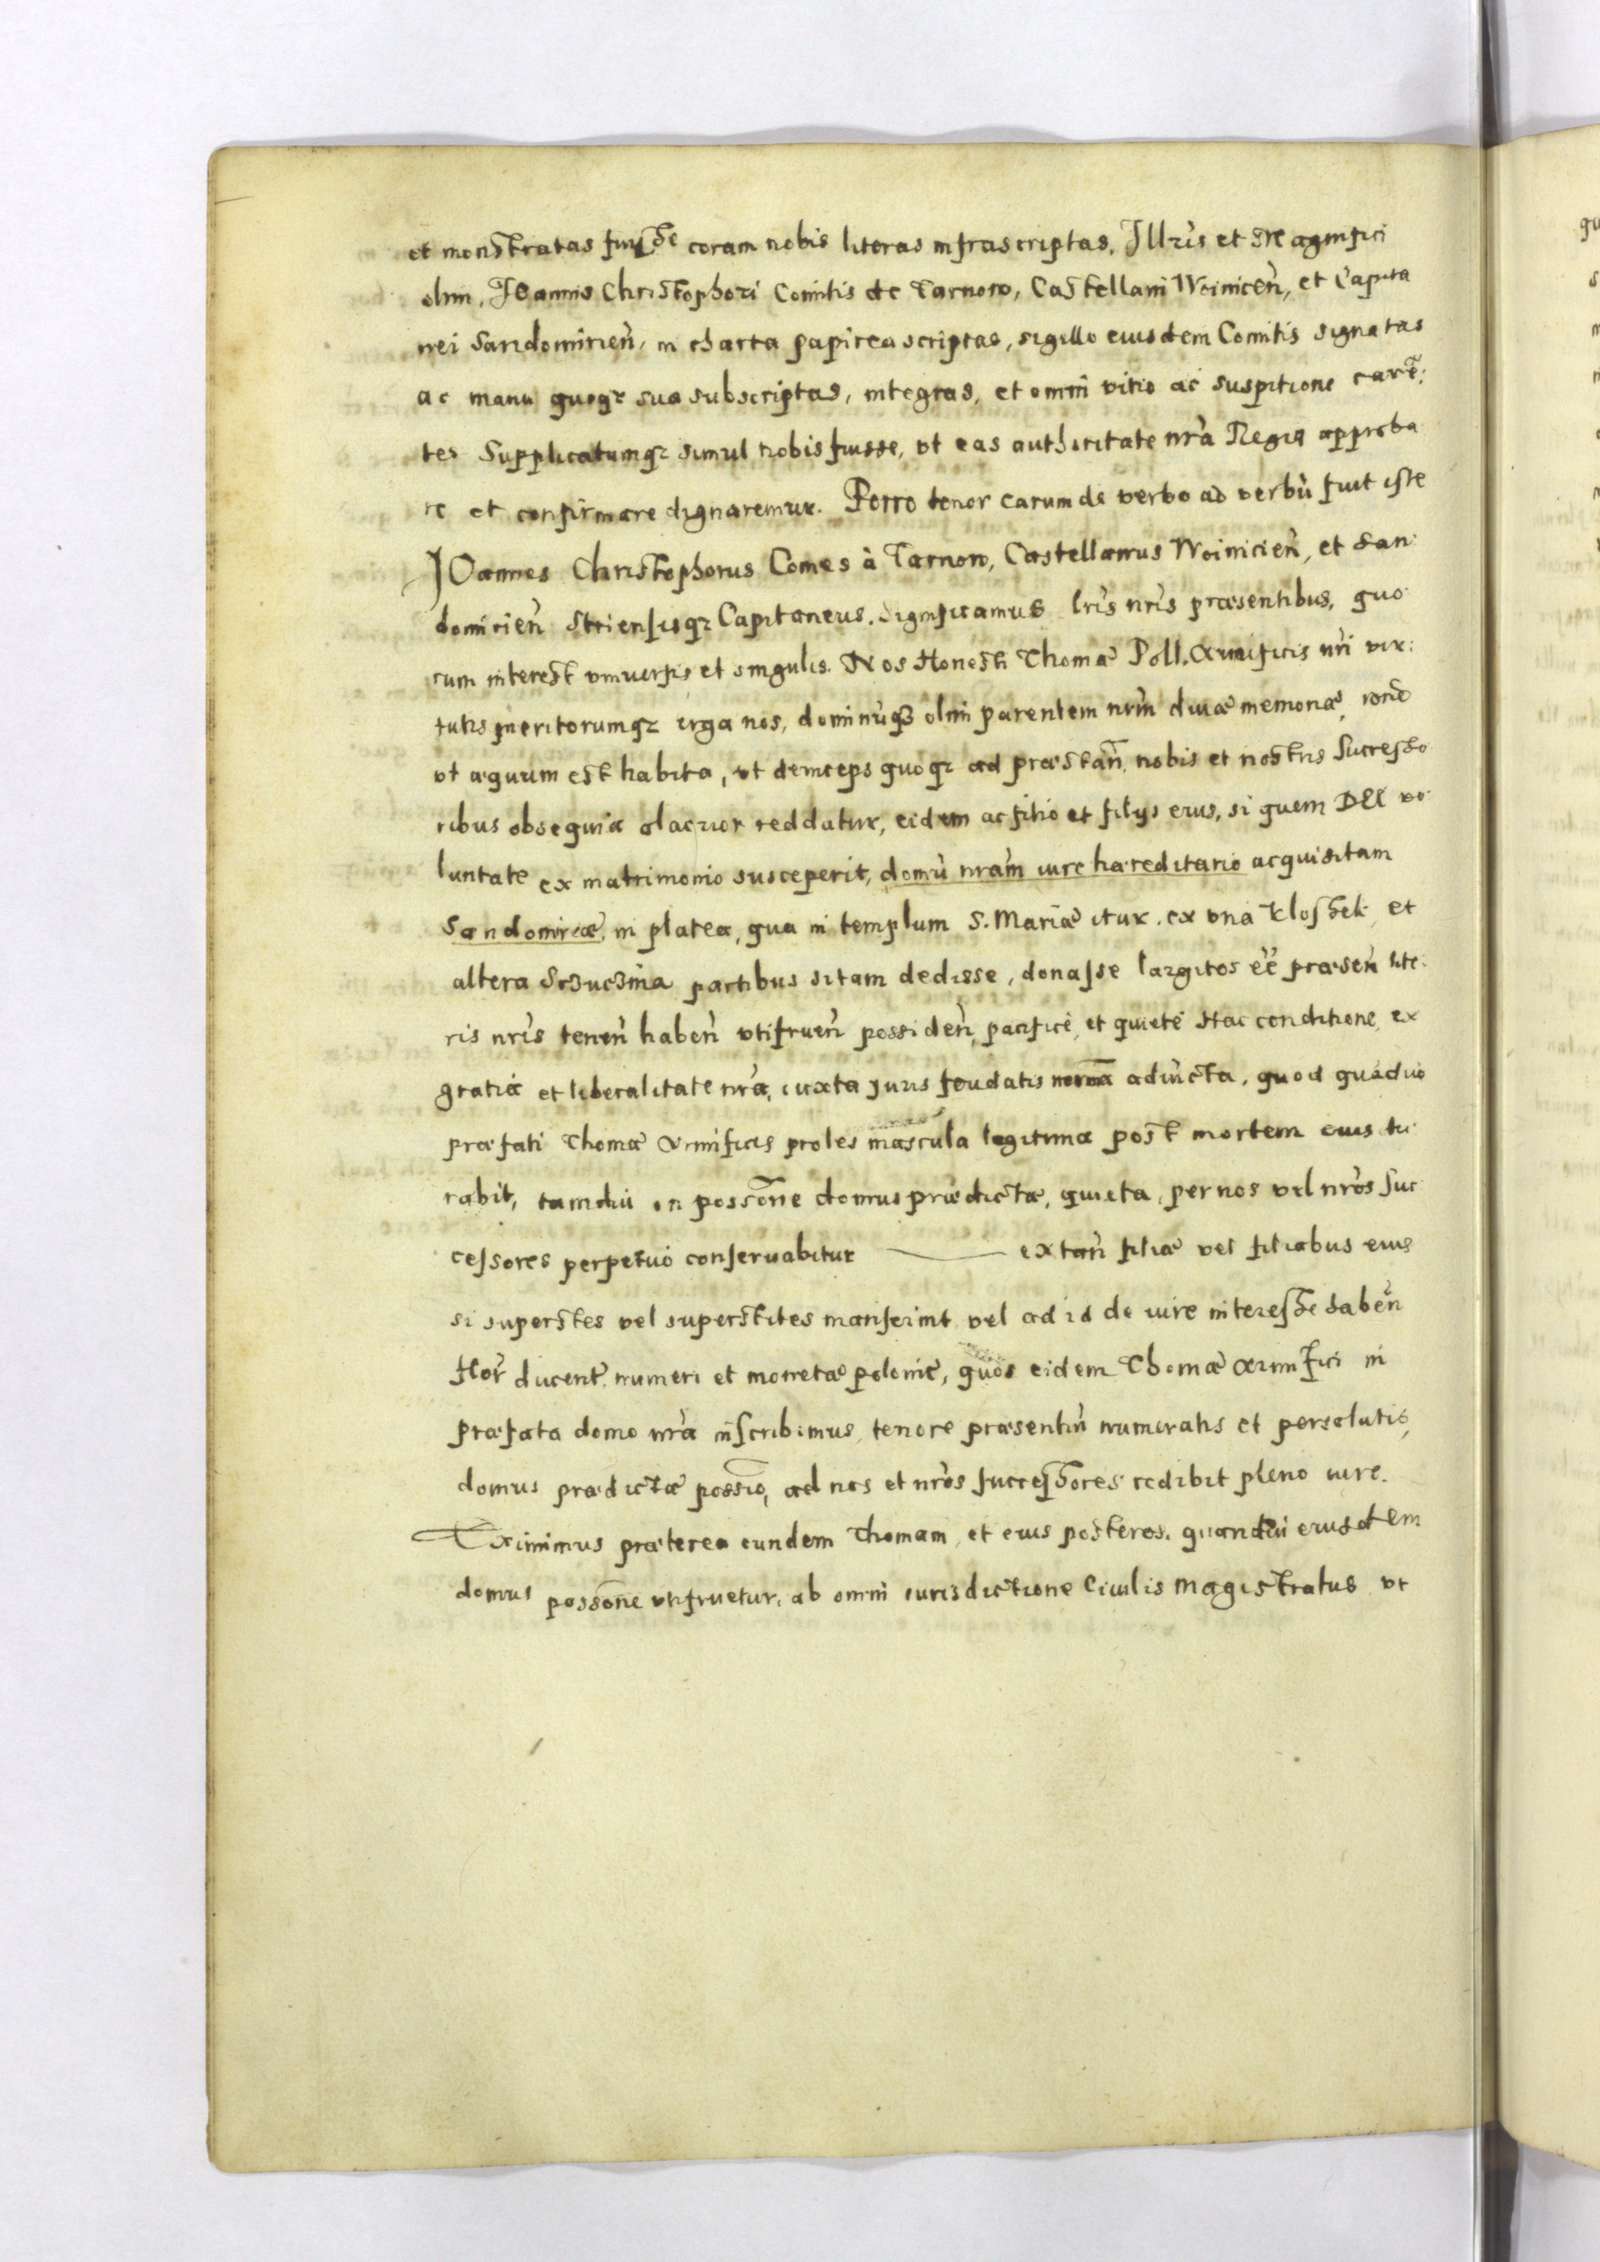 et monstratas fuisse coram nobis literas infrascriptas, Illrĩs et Magnifici
olim, Joannis Christophori Comitis de Tarnow, Castellani Woinicen̄, et Capita
nei Sandomirien̄, in charta papirea scriptas, sigillo eiusdem Comitis signatas
ac manu quoqз sua subscriptas, integras, et omni vitio ac suspitione carẽ:
tes Supplicatumqз simul nobis fuisse, vt eas authoritate nrã Regia approba
re et confirmare dignaremur. Porro tenor earum de verbo ad verbũ fuit iste
JOannes Christophorus Comes à Tarnow, Castellanus Woinicien̄, et San
domirien̄ Striensisqз Capitaneus. Significamus lrĩs nrĩs præsentibus, quo
rum interest vniuersis et singulis. Nos Honesti Thomæ Poll. Aurificis nrĩ vir:
tutis meritorumqз erga nos, dominũqз olim parentem nrm̃ diuæ memoriæ, rõne
vt æquum est habita, vt deinceps quoqз ad præstan̄ nobis et nostris Successo
ribus obsequia alacrior reddatur, eidem ac filio et filijs eius, si quem DEI vo
luntate ex matrimonio susceperit, domũ nrãm iure hæreditario acquisitam
Sandomiriæ, in platea, qua in templum S. Mariæ itur. ex vna Klossek et
altera partibus sitam dedisse, donasse largitos eẽ præsen̄ lite
ris nrĩs tenen̄ haben̄ vtifruen̄ possiden̄, pacificè, et quietè Hac conditione, ex
gratia et liberalitate nrã, iuxta juris feudalis normã adiũcta, quod quãdiu
præfati Thomæ Aurificis proles mascula legitima post mortem eius du
rabit, tamdiu in possõne domus prædictæ, quieta, per nos vel nrõs suc
cessores perpetuò conseruabitur extan̄ filiæ vel filiabus eius
si superstes vel superstites manserint vel ad id de iure interesse haben̄
flor̃ ducent̃ numeri et monetæ polonicæ, quos eidem Thomæ aurifici in
præfata domo nrã inscribimus, tenore præsentiũ numeratis et persolutis,
domus prædictæ possio, ad nos et nrõs successores redibit pleno iure.
Eximimus præterea eundem Thomam, et eius posteros, quandiu eiusdem
domus possõne vtifruetur, ab omni iurisdictione Ciuilis Magistratus vt